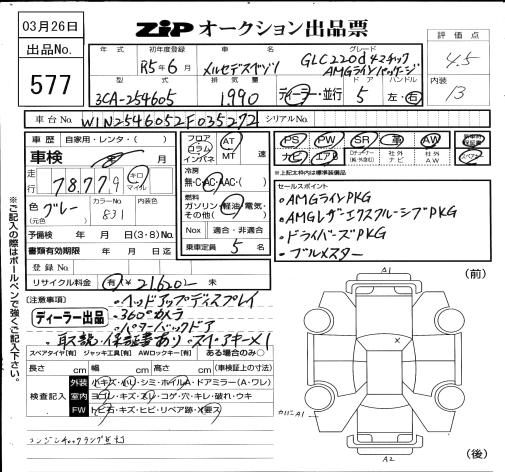 03月26日
出品No.
577
ZIP オークション出品票
評価点
4.5
内装
13
年式 初年度登録 車名 グレード
R5年6月 メルセデスベンツ GLC220d 4マチック
AMGラインパッケージ
型式 排気量 ディーラー・並行 ドア ハンドル
3CA-254605 1,990 5 左・右
車台No. W1N2546052F035272 シリアルNo.
車歴 自家用・レンタ・( )
車検 年 月
走行 78,779 キロ マイル
色 グレー (元色) カラーNo. 831 内装色
予備検 年 月 日(3・8)No.
書類有効期限 年 月 日
登録No.
リサイクル料金 有 ¥21,620- 未
フロア コラム インパネ AT MT 速
冷房 無・C AC AAC・( )
燃料 ガソリン・軽油・電気・その他( )
Nox 適合・非適合
乗車定員 5 名
PS PW SR 革 AW
ナビ エアB 社外ナビ 社外AW
※上記太枠内は標準装備品
セールスポイント
・AMGラインPKG
・AMGレザーエクスクルーシブPKG
・ドライバーズPKG
・ブルメスター
(注意事項)
ディーラー出品
・ヘッドアップディスプレイ
・360°カメラ
・パワーバックドア
・取説・保証書あり ・スペアキー×1
スペアタイヤ[有] ジャッキ工具[有] AWロックキー[有] ある場合のみ○
長さ cm 幅 cm 高さ cm (車検証上の寸法)
検査記入
外装 小キズ・小リ・シミ・ホイルA・ドアミラー(A・ワレ)
室内 ヨゴレ・キズ・スレ・コゲ・穴・キレ・破れ・ウキ
FW トビ石・キズ・ヒビ・リペア跡・X要ス
エンジンチェックランプ点灯
※ご記入の際はボールペンで強くご記入下さい。
(前)
A1
x
カバニキA1
A2
(後)